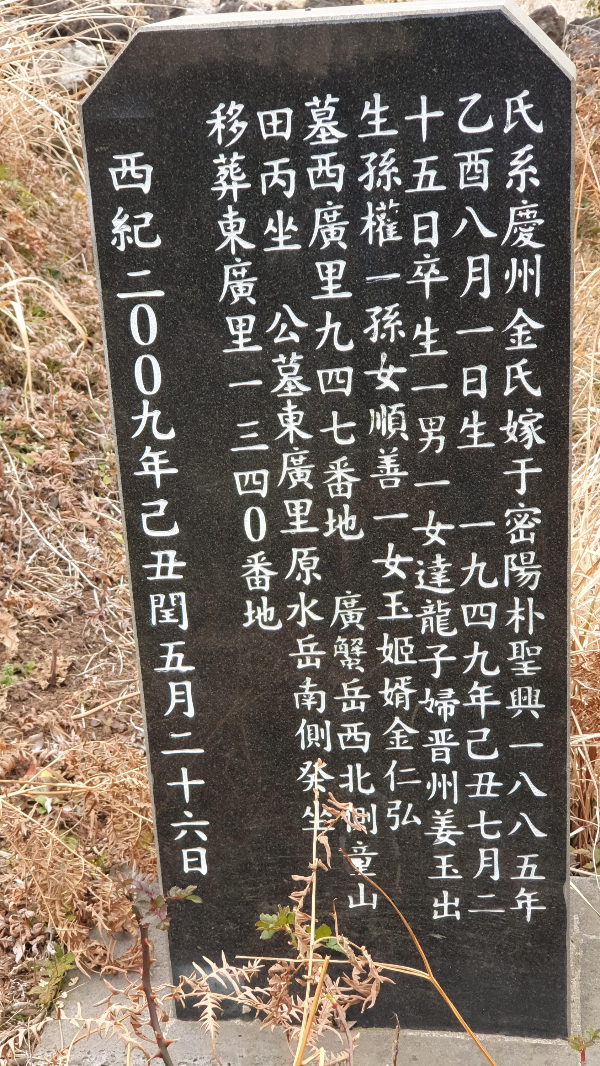 氏系慶州金氏嫁于密陽朴聖興一八八五年
乙酉八月一日生 一九四九年己丑七月二
十五日卒生一男一女達龍子婦晋州姜玉出
生孫權一孫女順善一女玉姬婿金仁弘
墓西廣里九四七番地 廣蟹岳西北側童山
田丙坐 公墓東廣里原水岳南側癸坐
移葬東廣里一三四0番地
西紀二00九年己丑閏五月二十六日